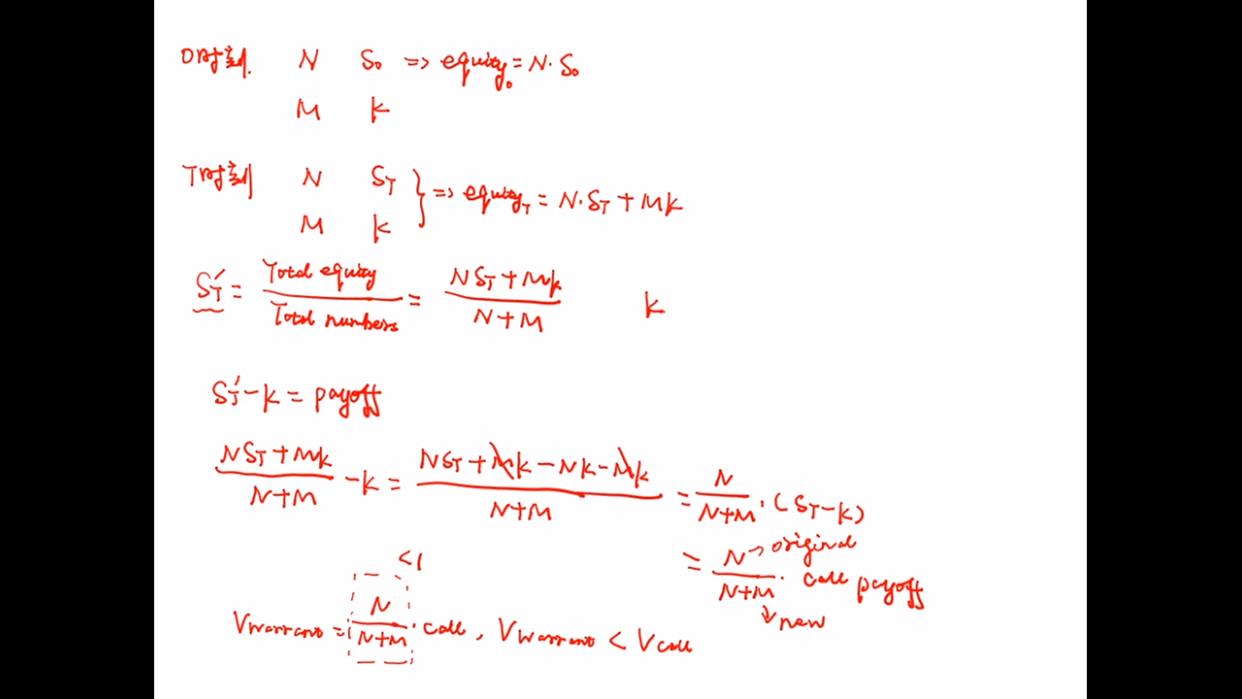 0时刻. N S₀ => equity₀ = N · S₀
M K
T时刻 N S_T } => equity_T = N · S_T + MK
M K
S_T' = Total equity / Total numbers = (NS_T + MK) / (N+M) K
S_T' - K = payoff
(NS_T + MK) / (N+M) - K = (NS_T + MK - NK - MK) / (N+M) = N / (N+M) · (S_T - K)
= N → original / (N+M) → new · call payoff
<1
V warrant = N / (N+M) · call , V warrant < V call